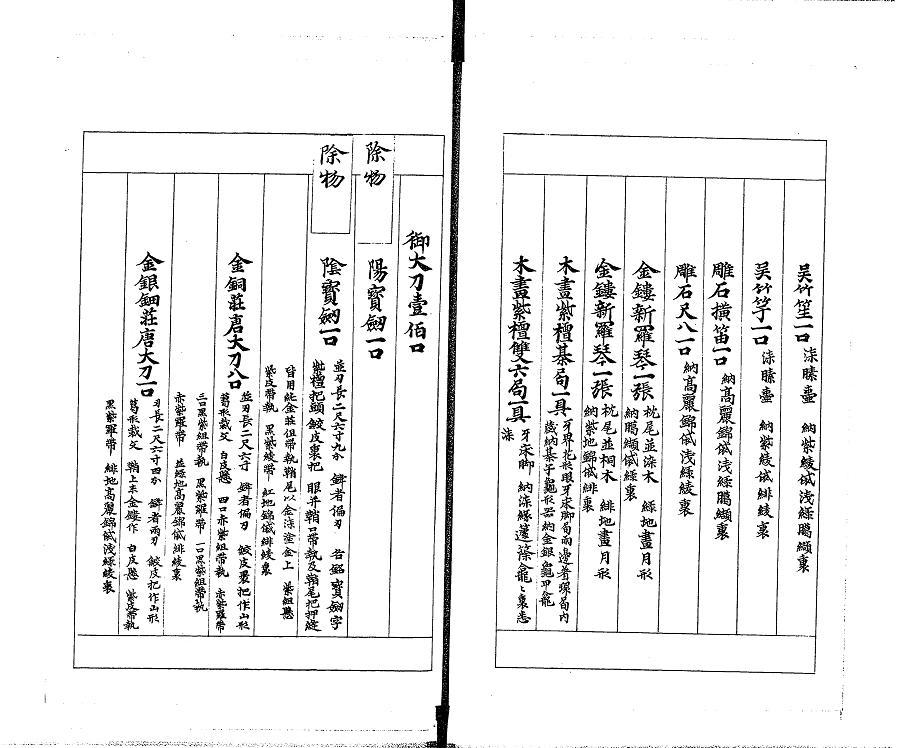 吴竹笙一口 漆䐉壺 納紫綾袋浅緑臈纈裏
吴竹竽一口 漆䐉壺 納紫綾袋緋綾裏
雕石横笛一口 納高麗錦袋浅緑臈纈裏
雕石尺八一口 納高麗錦袋浅緑綾裏
金鏤新羅琴一張 枕尾並染木 緑地畫月形
納臈纈袋緑裏
金鏤新羅琴一張 枕尾並桐木 緋地畫月形
納紫地錦袋緋裏
木畫紫檀碁局一具 牙界花形眼牙床脚局両邊著環局内
蔵納碁子龜形器納金銀龜甲龕
木畫紫檀雙六局一具 牙床脚 納漆縁籧篨龕〻裏悉
漆
御大刀壹佰口
除物
陽寶劒一口
除物
陰寶劒一口 並刃長二尺六寸九分 鋒者偏刃 各銘寶劒字
紫檀把頭鮫皮裹把 眼并鞘口帯執及鞘尾把押縫
皆用純金荘但帯執鞘尾以金漆塗金上 紫組懸
紫皮帯執 黒紫綾帯 紅地錦袋緋綾裏
金銅荘唐大刀八口 並刃長二尺六寸 鋒者偏刃 鮫皮裹把作山形
葛形裁文 白皮懸 四口赤紫組帯執 赤紫羅帯
三口黒紫組帯執 黒紫羅帯 一口黒紫組帯執
赤紫羅帯 並緑地高麗錦袋緋綾裏
金銀鈿荘唐大刀一口 刃長二尺六寸四分 鋒者兩刃 鮫皮把作山形
葛形裁文 鞘上末金鏤作 白皮懸 紫皮帯執
黒紫羅帯 緋地高麗錦袋浅緑綾裏